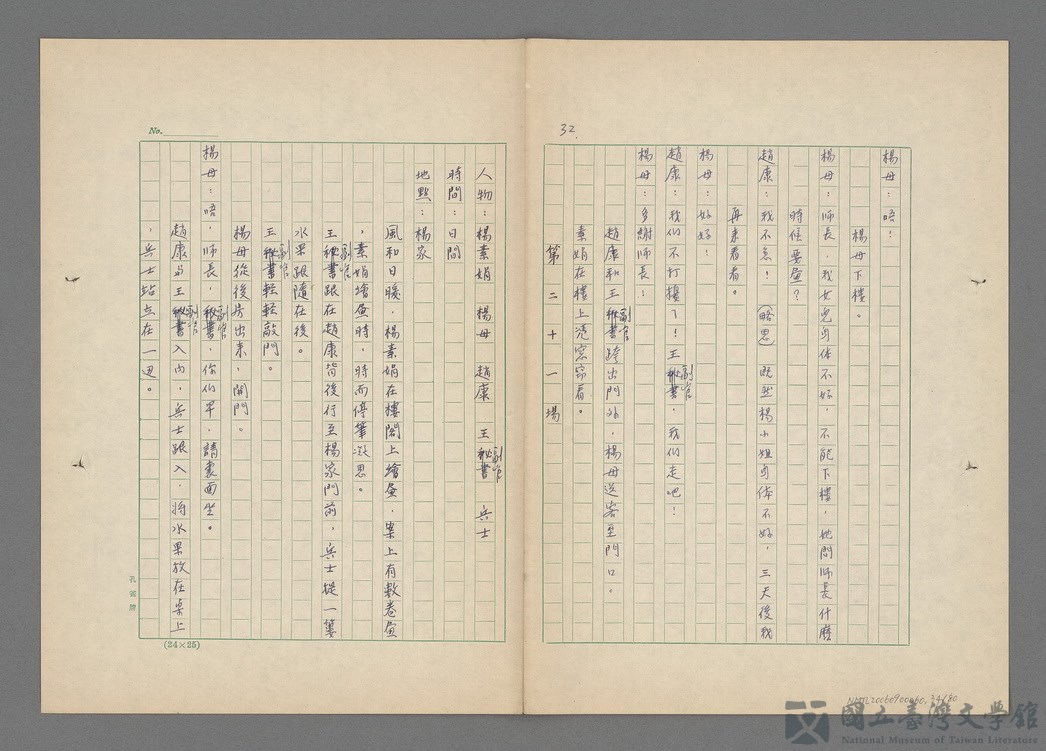 32.
楊母：唔！
楊母下樓。
楊母：師長，我女兒身体不好，不能下樓，她問師長什麼
時候要畫？
趙康：我不急！（略思）既然楊小姐身体不好，三天後我
再來看看。
楊母：好好！
趙康：我们不打擾了！王副官，我们走吧！
楊母：多謝師長！
趙康和王副官跨出門外，楊母送客至門口。
素娟在樓上憑窓窃看。
第二十一場
No.
人物：楊素娟　楊母　趙康　王副官　兵士
時間：日間
地點：楊家
風和日暖，楊素娟在樓閣上繪畫，案上有數卷畫
，素娟繪畫時，時而停筆凝思。
王副官跟在趙康背後行至楊家門前，兵士提一簍
水果跟隨在後。
王副官輕輕敲門。
楊母從後房出來，開門。
楊母：唔，師長，副官，你们早，請裏面坐。
趙康与王副官入內，兵士跟入，將水果放在桌上
，兵士站立在一边。
孔雀牌
(24×25)
NMTL20060900060, 34/80
國立臺灣文學館
National Museum of Taiwan Literature